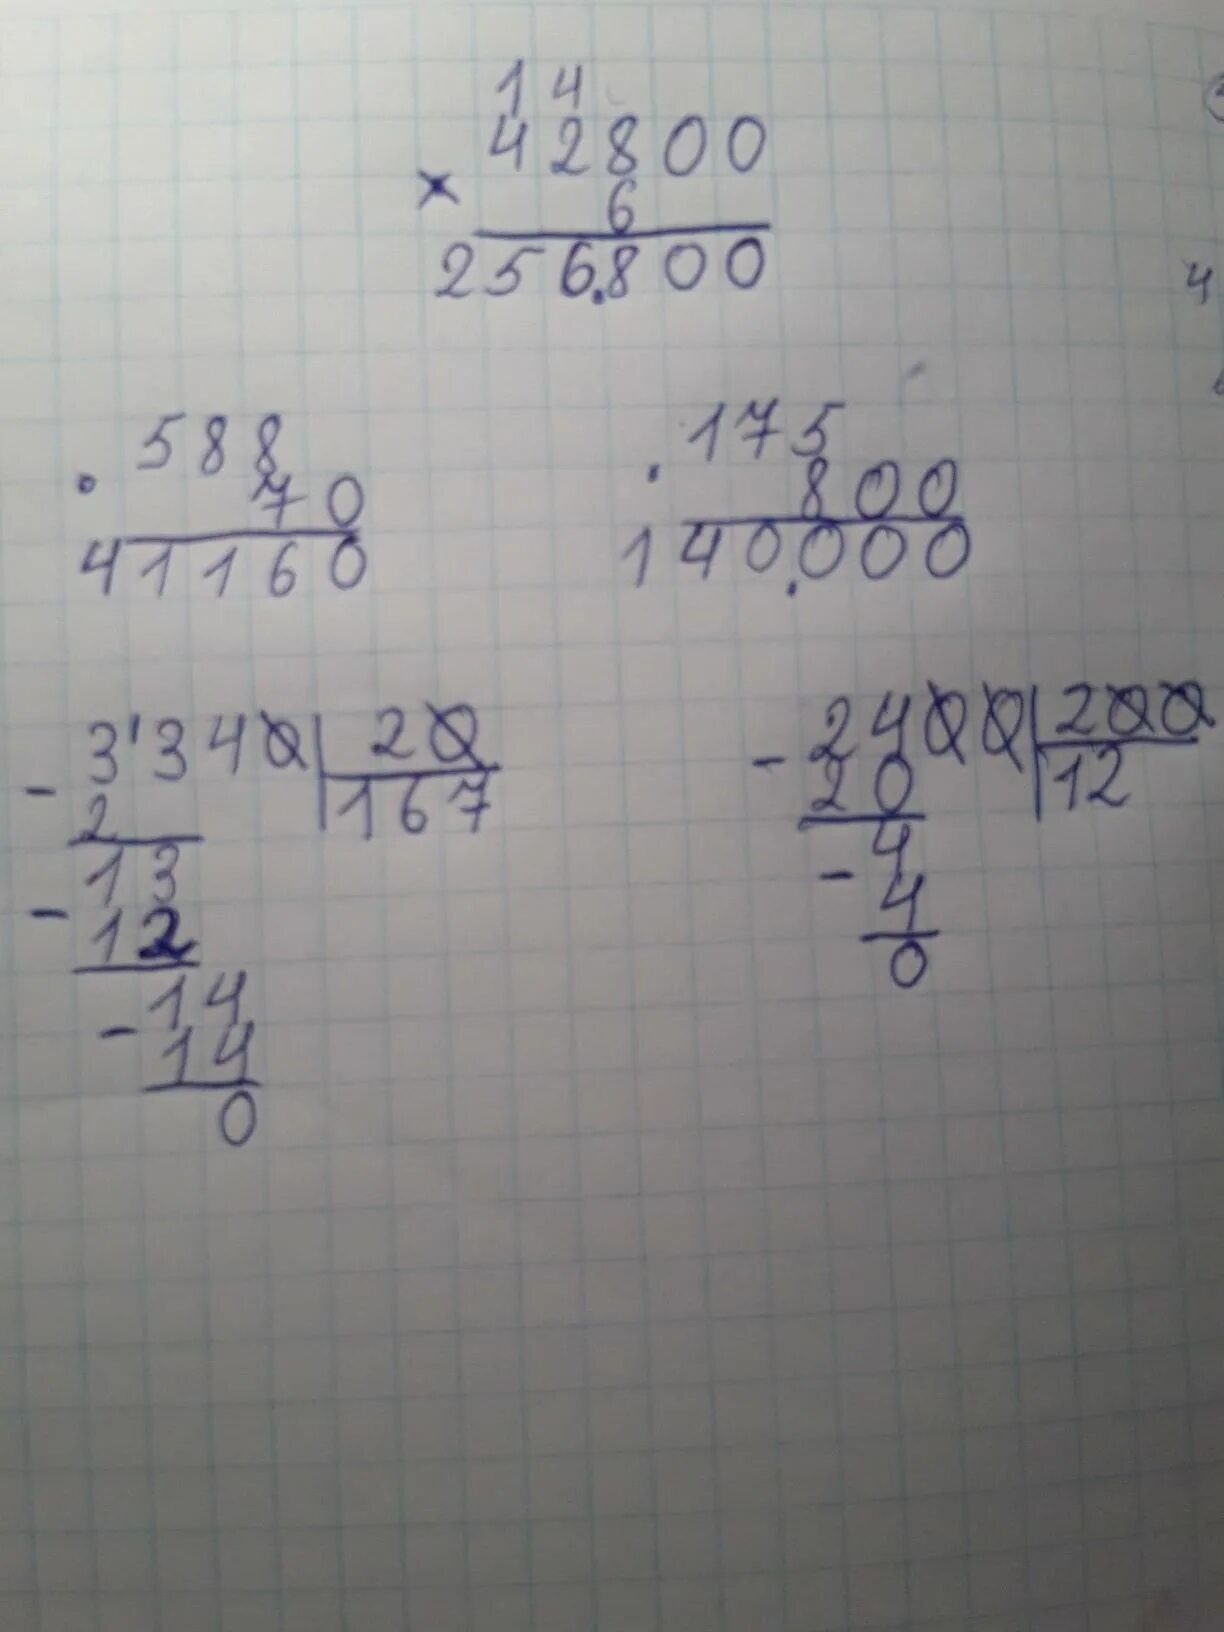 14
42800
× 6
256.800
· 588
70
41160
· 175
800
140.000
- 3'340 | 20
2 | 167
13
- 12
14
- 14
0
- 2400 | 200
20 | 12
4
- 4
0
4